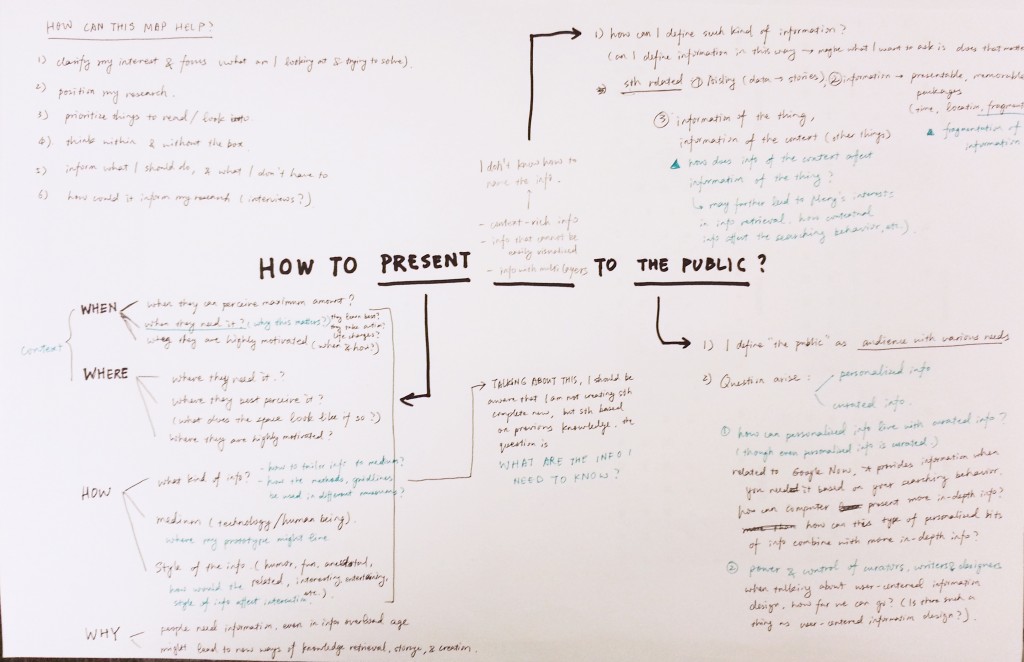 HOW CAN THIS MAP HELP?
1) clarify my interest & focus (what am I looking at & trying to solve).
2) position my research.
3) prioritize things to read / look into
4) think within & without the box
5) inform what I should do, & what I don't have to
6) how could it inform my research (interviews?)
1) how can I define such kind of information?
(can I define information in this way → maybe what I want to ask is does that matter
sth related ① (data → stories), ② information → presentable, memorable
packages
(time, location, fragment
▲ fragmentation of
information
③ information of the thing,
information of the context (other things)
▲ how does info of the context affect
information of the thing?
↳ may further lead to Meng's interest:
in info retrieval, how contextual
info affect the searching behavior, etc.)
I don't know how to
name the info.
- context-rich info
- info that cannot be
easily visualized
- info with multi layers
HOW TO PRESENT ______ TO THE PUBLIC?
context
WHEN
when they can perceive maximum amount?
when they need it? (why this matters?)
they learn best?
they take action?
life changes?
when they are highly motivated (when & how?)
WHERE
where they need it?
where they best perceive it?
(what does the space look like if so?)
where they are highly motivated?
HOW
what kind of info?
- how to tailor info to medium?
- how the methods, guidlines
be used in different museums?
medium (technology/human being).
where my prototype might live
style of the info (humor, fun, anecdotal,
related, interesting, entertaining,
etc.)
how would the
style of info affect interaction.
WHY
people need information, even in info overload age
might lead to new ways of knowledge retrieval, storage, & creation.
TALKING ABOUT THIS, I should be
aware that I am not creating sth
complete new, but sth based
on previous knowledge. the
question is
WHAT ARE THE INFO I
NEED TO KNOW?
1) I define "the public" as audience with various needs
2) Question arise:
personalised info
curated info.
① how can personalised info live with curated info?
(though even personalised info is curated.)
related to Google Now, → provides information when
you need it based on your searching behavior.
how can computer present more in-depth info?
how can this type of personalised bits
of info combine with more in-depth info?
② power & control of curators, writers & designers
when talking about user-centered information
design, how far we can go? (Is there such a
thing as user-centered information design?).